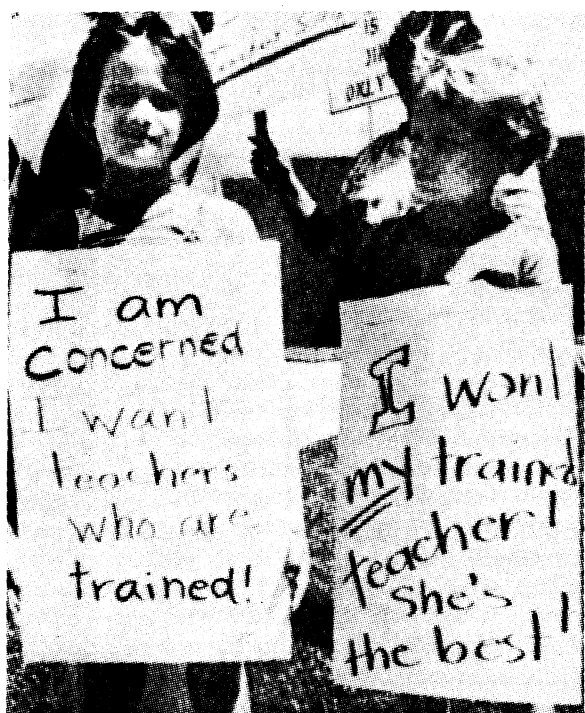 IS
ONLY
I am
Concerned
I want
teachers
who are
trained!
I want
my trained
teacher!
She's
the best!